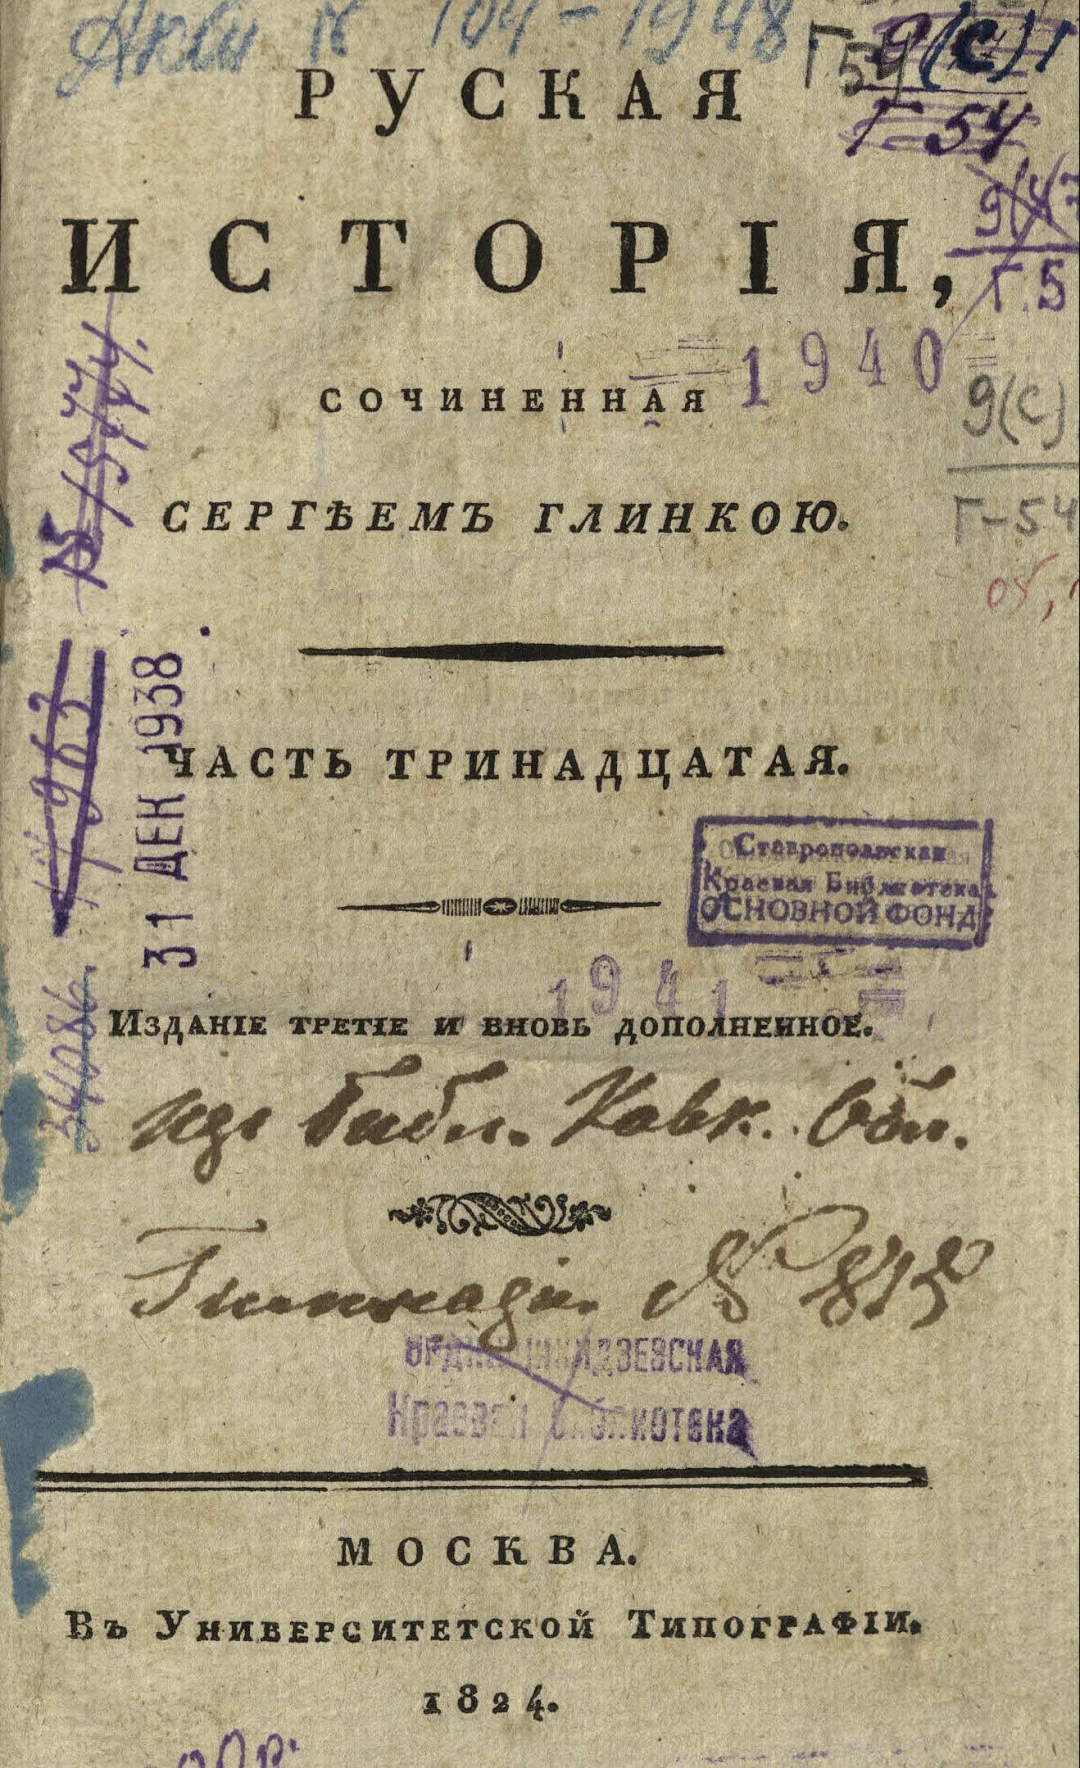 Акт № 104-1948
Г54
9(С)1
Г 54
РУСКАЯ
9(47
Г.5
ИСТОРІЯ,
1940
СОЧИНЕННАЯ
9(С)
Г-54
СЕРГѢЕМЪ ГЛИНКОЮ.
31 ДЕК 1938
ЧАСТЬ ТРИНАДЦАТАЯ.
Ставропольская
Краевая Библиотека
ОСНОВНОЙ ФОНД
1941
ИЗДАНІЕ ТРЕТІЕ И ВНОВЬ ДОПОЛНЕННОЕ.
34086.
изъ Библ. Кавк. Обл.
Гимназіи. № 815
ОРДЖОНИКИДЗЕВСКАЯ
Краевая библиотека
МОСКВА.
ВЪ УНИВЕРСИТЕТСКОЙ ТИПОГРАФІИ.
1824.